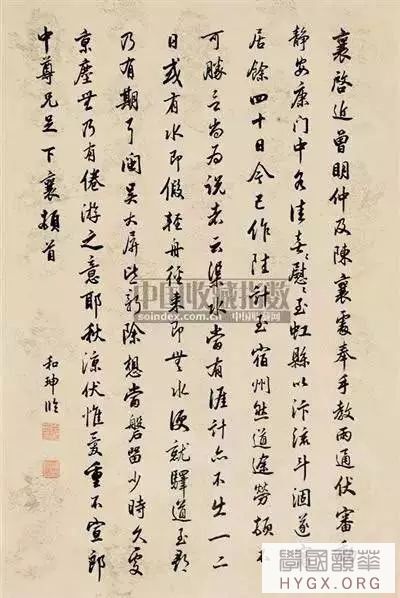 襄啓近曾明仲及陳襄處奉手教兩通伏審動
靜安康門中各佳喜〻慰〻至虹縣以汴流斗涸遂
居餘四十日今已作陸計至宿州然道途勞頓不
可勝言尚為說者云渠水當有涯計亦不出一二
日或有水即假輕舟徑來即無水便就驛道至都
乃有期耳閩吳大屏皆新除想當磐留少時久處
京塵無乃有倦游之意耶秋涼伏惟愛重不宣郎
中尊兄足下襄頓首
和珅臨
中国收藏指数
soindex.com
學國韻華
HYGX.ORG